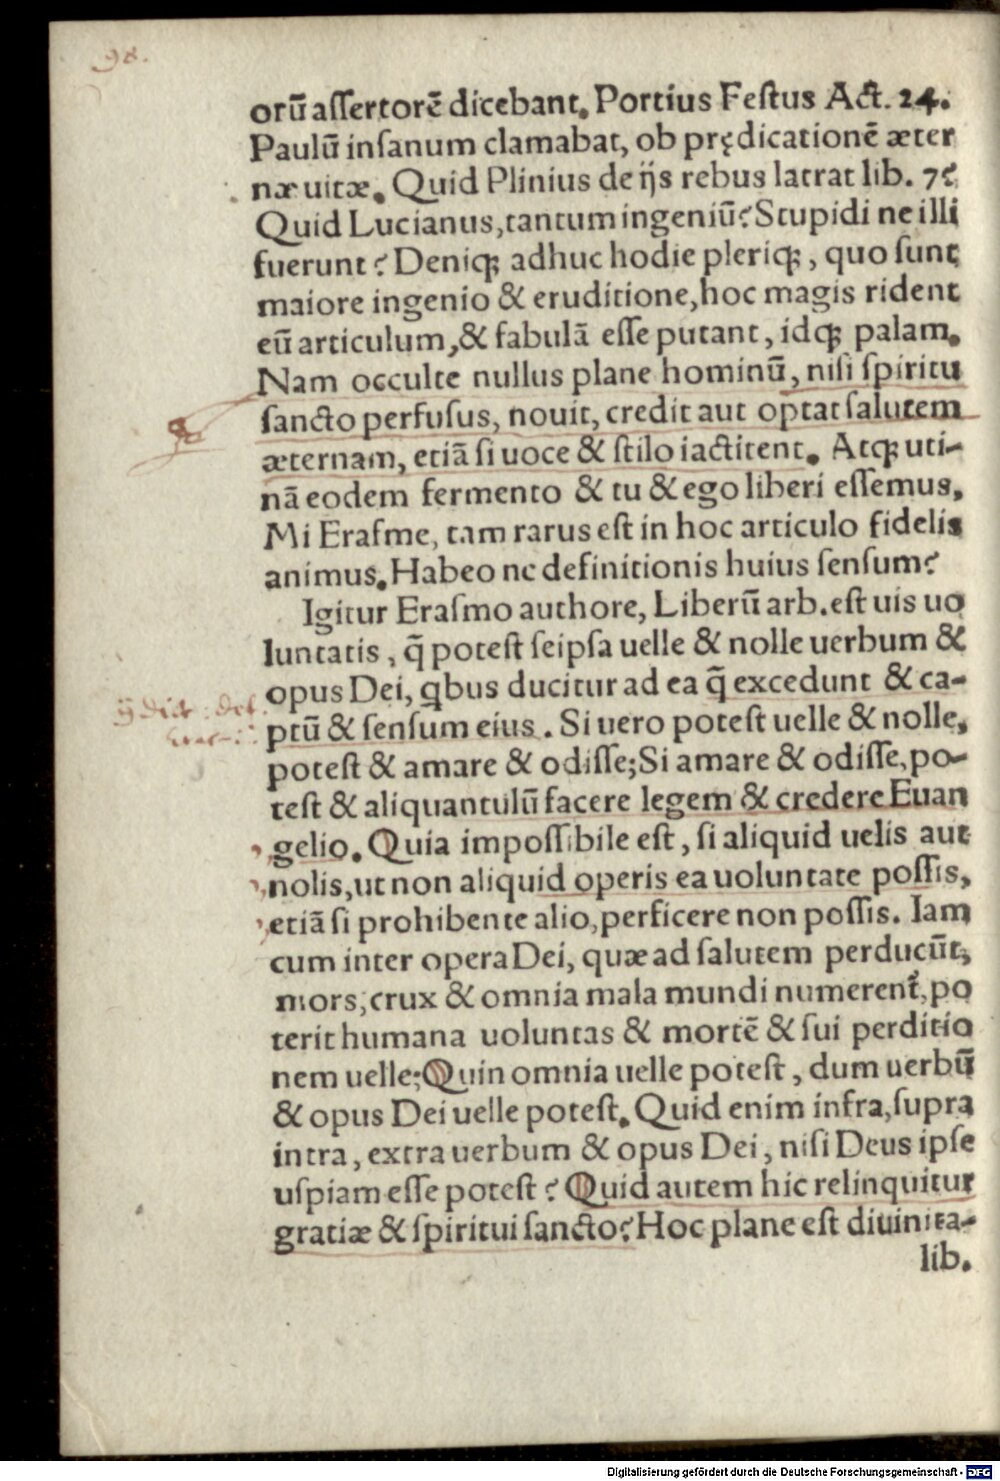 98.
orū aſſertorē dicebant. Portius Feſtus Act. 24.
Paulū inſanum clamabat, ob prędicationē æter
næ uitæ. Quid Plinius de ijs rebus latrat lib. 7?
Quid Lucianus, tantum ingeniū? Stupidi ne illi
fuerunt? Deniqꝫ adhuc hodie pleriqꝫ, quo ſunt
maiore ingenio & eruditione, hoc magis rident
eū articulum, & fabulā eſſe putant, idqꝫ palam.
Nam occulte nullus plane hominū, niſi ſpiritu
ſancto perfuſus, nouit, credit aut optat ſalutem
æternam, etiā ſi uoce & ſtilo iactitent. Atqꝫ uti-
nā eodem fermento & tu & ego liberi eſſemus,
Mi Eraſme, tam rarus eſt in hoc articulo fidelis
animus. Habeo ne definitionis huius ſenſum?
Igitur Eraſmo authore, Liberū arb. eſt uis uo
luntatis, q̄ poteſt ſeipſa uelle & nolle uerbum &
opus Dei, qbus ducitur ad ea q̄ excedunt & ca-
ptū & ſenſum eius. Si uero poteſt uelle & nolle,
poteſt & amare & odiſſe; Si amare & odiſſe, po-
teſt & aliquantulū facere legem & credere Euan
gelio. Quia impoſſibile eſt, ſi aliquid uelis aut
nolis, ut non aliquid operis ea uoluntate poſſis,
etiā ſi prohibente alio, perficere non poſſis. Iam
cum inter opera Dei, quæ ad ſalutem perducūt,
mors, crux & omnia mala mundi numerent᷑, po
terit humana uoluntas & mortē & ſui perditio
nem uelle; Quin omnia uelle poteſt, dum uerbū
& opus Dei uelle poteſt. Quid enim infra, ſupra
intra, extra uerbum & opus Dei, niſi Deus ipſe
uſpiam eſſe poteſt? Quid autem hic relinquitur
gratiæ & ſpiritui ſancto? Hoc plane eſt diuinita-
lib.
Digitalisierung gefördert durch die Deutsche Forschungsgemeinschaft - DFG